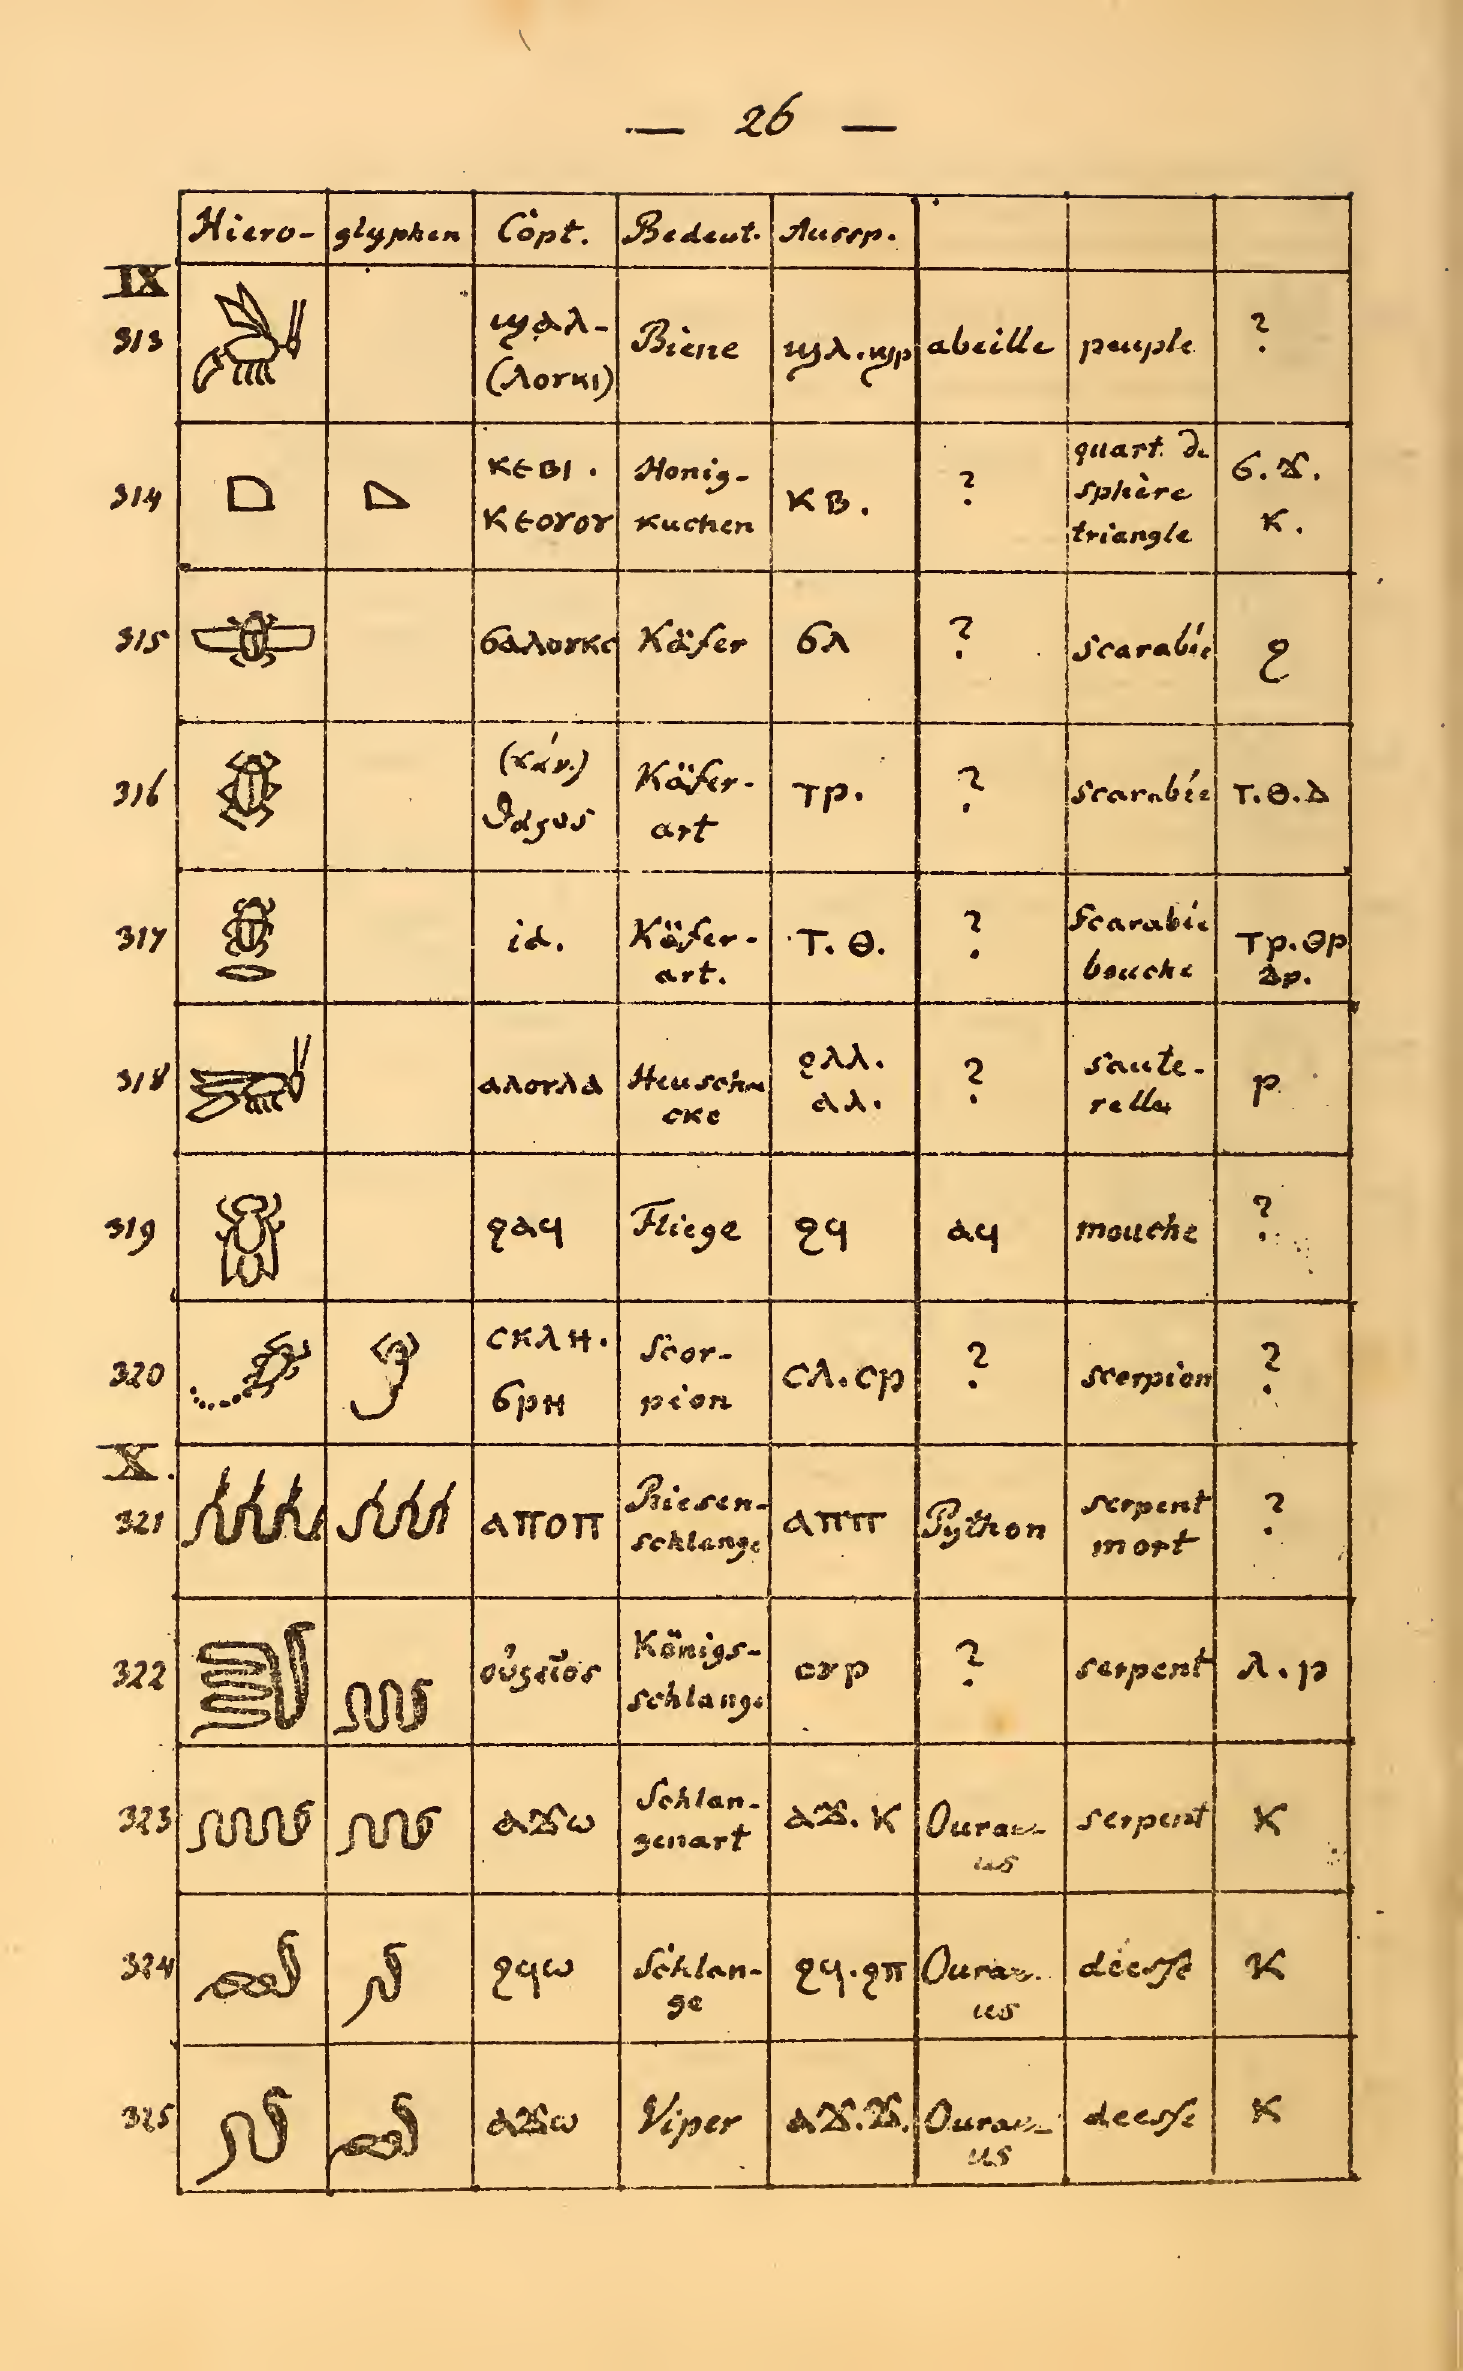 — 26 —
Hiero- glyphen Copt. Bedeut. Aussp.
IX
313 ϣⲁⲗ- (ⲗⲟⲩⲕⲓ) Biene ϣⲗ.ϣⲣ abeille peuple ?
314 ⲕⲉⲃⲓ . ⲕⲉⲟⲩⲟⲩ Honig- kuchen ⲕⲃ. ? quart. de sphère triangle ϭ.ϫ. ⲕ.
315 ϭⲁⲗⲟⲩⲕⲥ Käfer ϭⲗ ? scarabée ϩ
316 Käfer- art ⲧⲣ. ? scarabée ⲧ.ⲑ.ⲇ
317 id. Käfer- art. ⲧ. ⲑ. ? Scarabée bouche ⲧⲣ.ⲑⲣ ⲇⲣ.
318 ⲁⲗⲟⲩⲗⲁ Heuschre cke ϩⲗⲗ. ⲁⲗ. ? saute- relle ⲣ
319 ϩⲁϥ Fliege ϩϥ ⲁϥ mouche ?
320 ⲥⲕⲗⲏ. ϭⲣⲏ Scor- pion ⲥⲗ.ⲥⲣ ? scorpion ?
X.
321 ⲁⲡⲟⲡ Riesen- schlange ⲁⲡⲡ Python serpent mort ?
322 οὐραῖος Königs- schlange ⲟⲩⲣ ? serpent ⲗ.ⲣ
323 ⲁϫⲱ Schlan- genart ⲁϫ.ⲕ Ourae- us serpent ⲕ
324 ϩϥⲱ Schlan- ge ϩϥ.ϩⲡ Ourae- us déesse ⲕ
325 ⲁϫⲱ Viper ⲁϫ.ϫ. Ourae- us deesse ⲕ